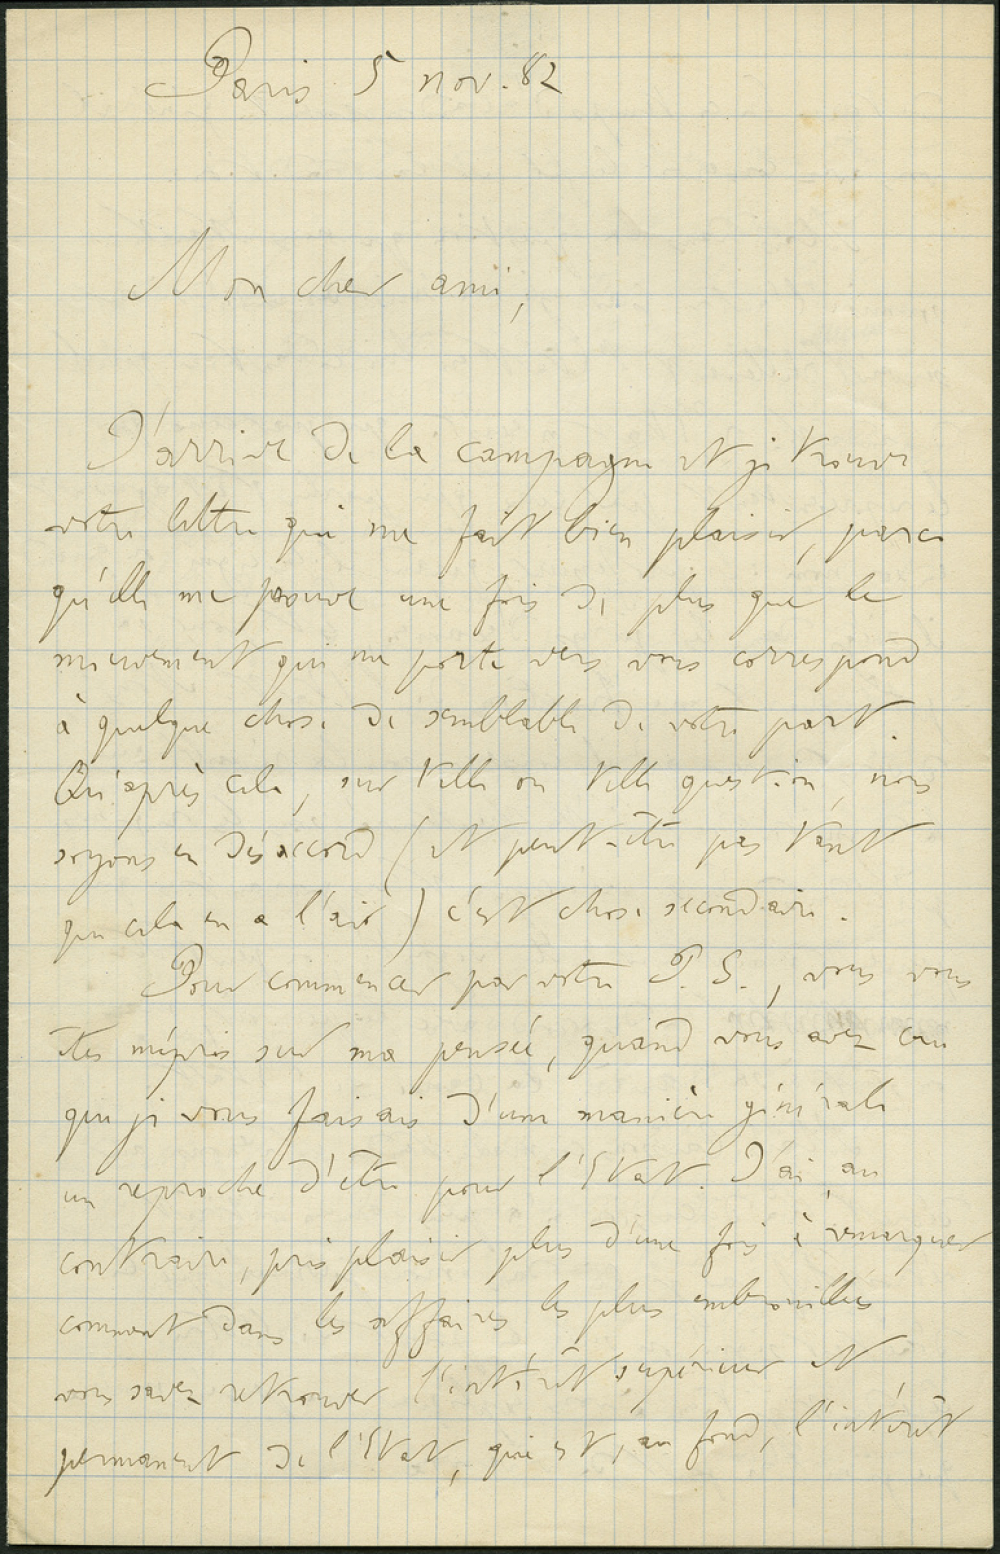 Paris 5 nov. 82
Mon cher ami,
J'arrive de la campagne et je trouve
votre lettre qui me fait bien plaisir, parce
qu'elle me prouve une fois de plus que le
mouvement qui me porte vers vous correspond
à quelque chose de semblable de votre part.
Qu'après cela, sur telle ou telle question, nous
soyons en désaccord (et peut-être pas tant
que cela en a l'air) c'est chose secondaire.
Pour commencer par votre P. S., vous vous
êtes mépris sur ma pensée, quand vous avez cru
que je vous faisais d'une manière générale
un reproche d'être pour l'Etat. J'ai, au
contraire, pris plaisir plus d'une fois à remarquer
comment dans les affaires les plus embrouillées
vous savez retrouver l'intérêt supérieur et
permanent de l'Etat, qui est, au fond, l'intérêt